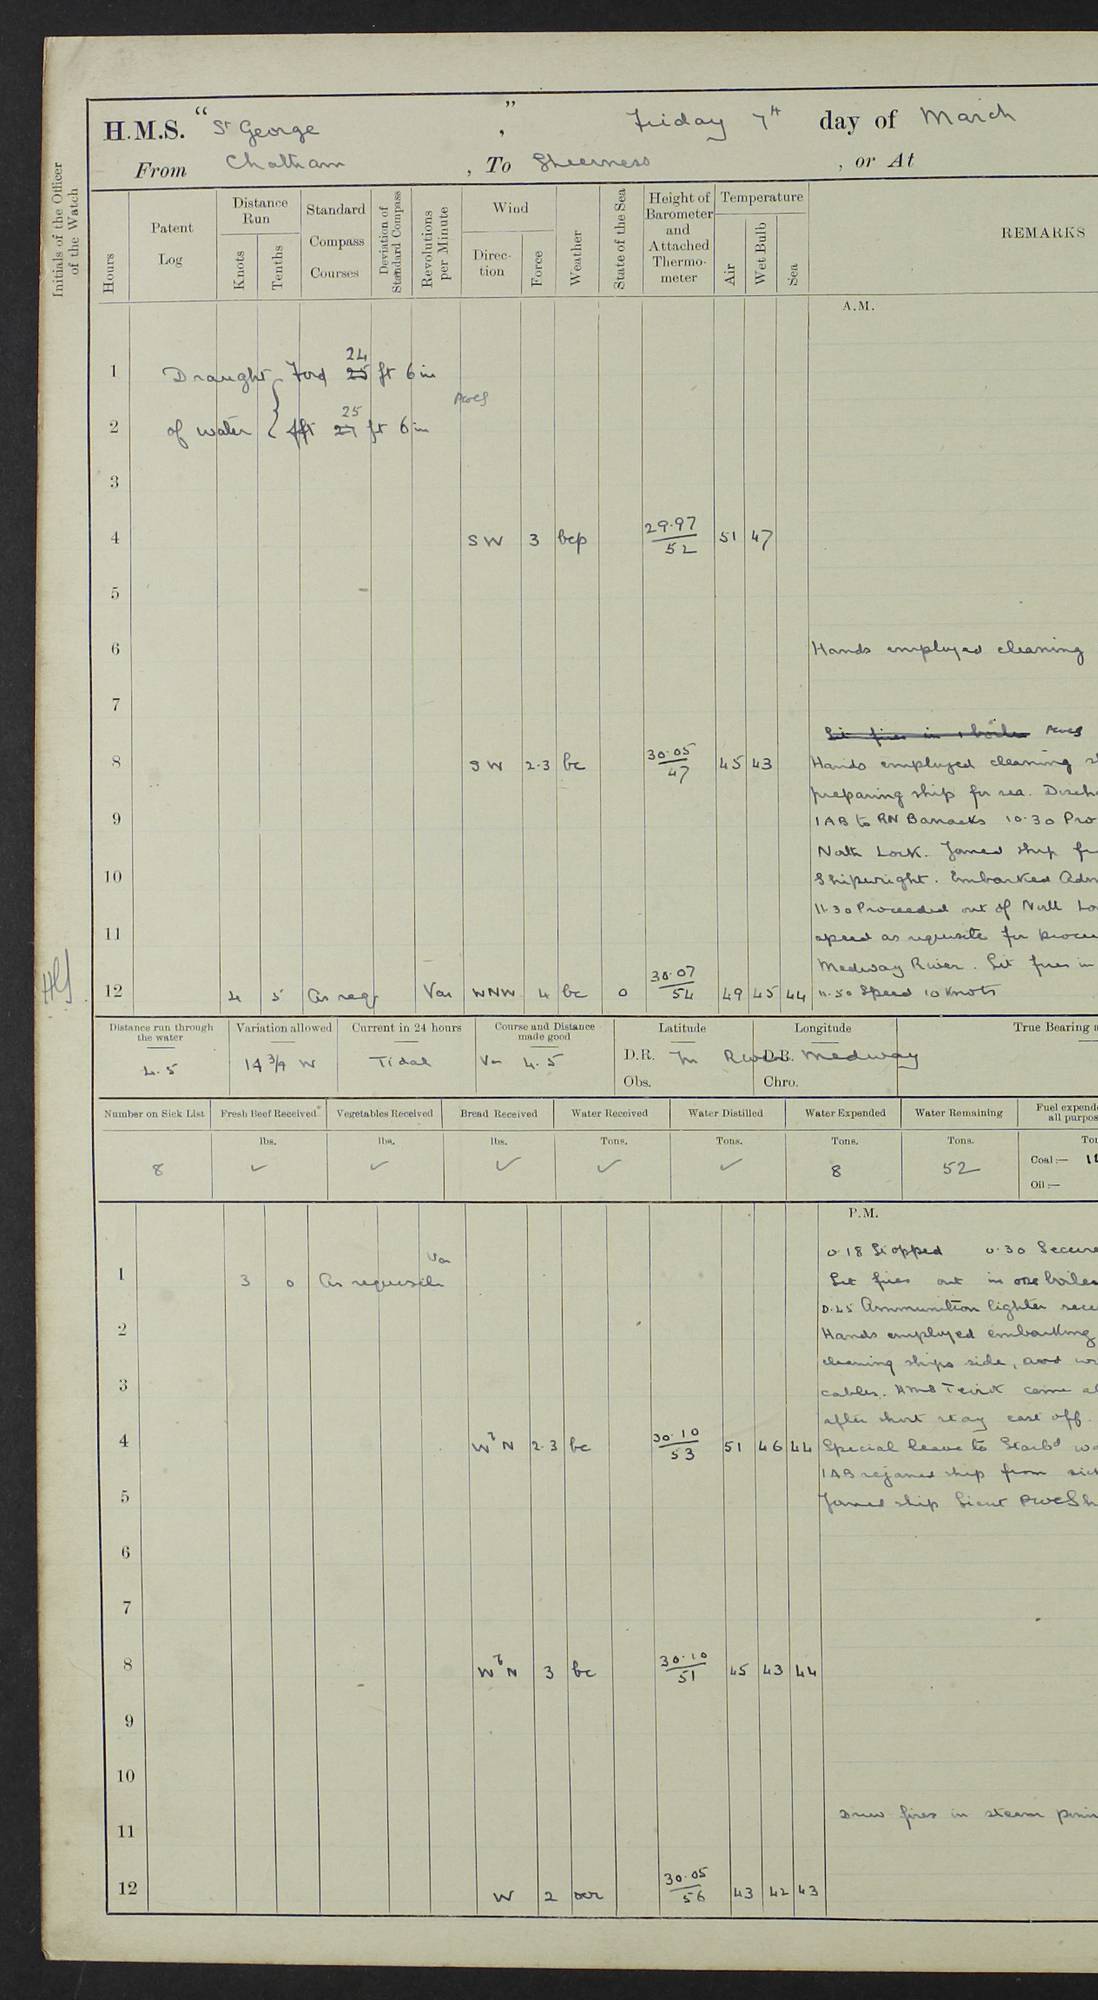 H.M.S. "St George", Friday 7th day of March
From Chatham, To Sheerness, or At
Initials of the Officer of the Watch
Hours
Patent Log
Distance Run
Knots
Tenths
Standard Compass Courses
Deviation of Standard Compass
Revolutions per Minute
Wind
Direction
Force
Weather
State of the Sea
Height of Barometer and Attached Thermometer
Temperature
Air
Wet Bulb
Sea
REMARKS
A.M.
1 Draught Ford 24 25 ft 6 in
2 of water Aft 25 27 ft 6 in
3
4 SW 3 bcp 29.97 52 51 47
5
6 Hands employed cleaning
7
Lit fires in 1 boiler
8 SW 2.3 bc 30.05 47 45 43 Hands employed cleaning
preparing ship for sea. Disch
9 1 AB to RN Barracks 10.30 Pro
North Lock. Joined ship
10 Shipwright. Embarked Adm
11.30 Proceeded out of North Lo
11 speed as requisite for
Medway River. Lit fires in
12 4 5 As req Var WNW 4 bc 0 30.07 54 49 45 44 11.50 Speed 10 Knots
Distance run through the water 4.5
Variation allowed 14 3/4 W
Current in 24 hours Tidal
Course and Distance made good Var 4.5
Latitude
D.R. In River Medway
Obs.
Longitude
D.R.
Chro.
True Bearing
Number on Sick List
Fresh Beef Received
Vegetables Received
Bread Received
Water Received
Water Distilled
Water Expended
Water Remaining
Fuel expend
all purpos
lbs. lbs. lbs. Tons. Tons. Tons. Tons.
8 ✓ ✓ ✓ ✓ ✓ 8 52
Coal:—
Oil:—
P.M.
0.18 Stopped 0.30 Secure
1 3 0 As requisite Var Let fires out in one boiler
0.45 Ammunition lighter
2 Hands employed embarking
cleaning ships side, and
3 cables. HMS Teviot came
after short stay cast off.
4 WbN 2.3 bc 30.10 53 51 46 44 Special leave to Starbd
1 AB rejoined ship from sick
5 Joined ship Lieut
6
7
8 WbN 3 bc 30.10 51 45 43 44
9
10
Drew fires in steam
11
12 W 2 30.05 56 43 42 43